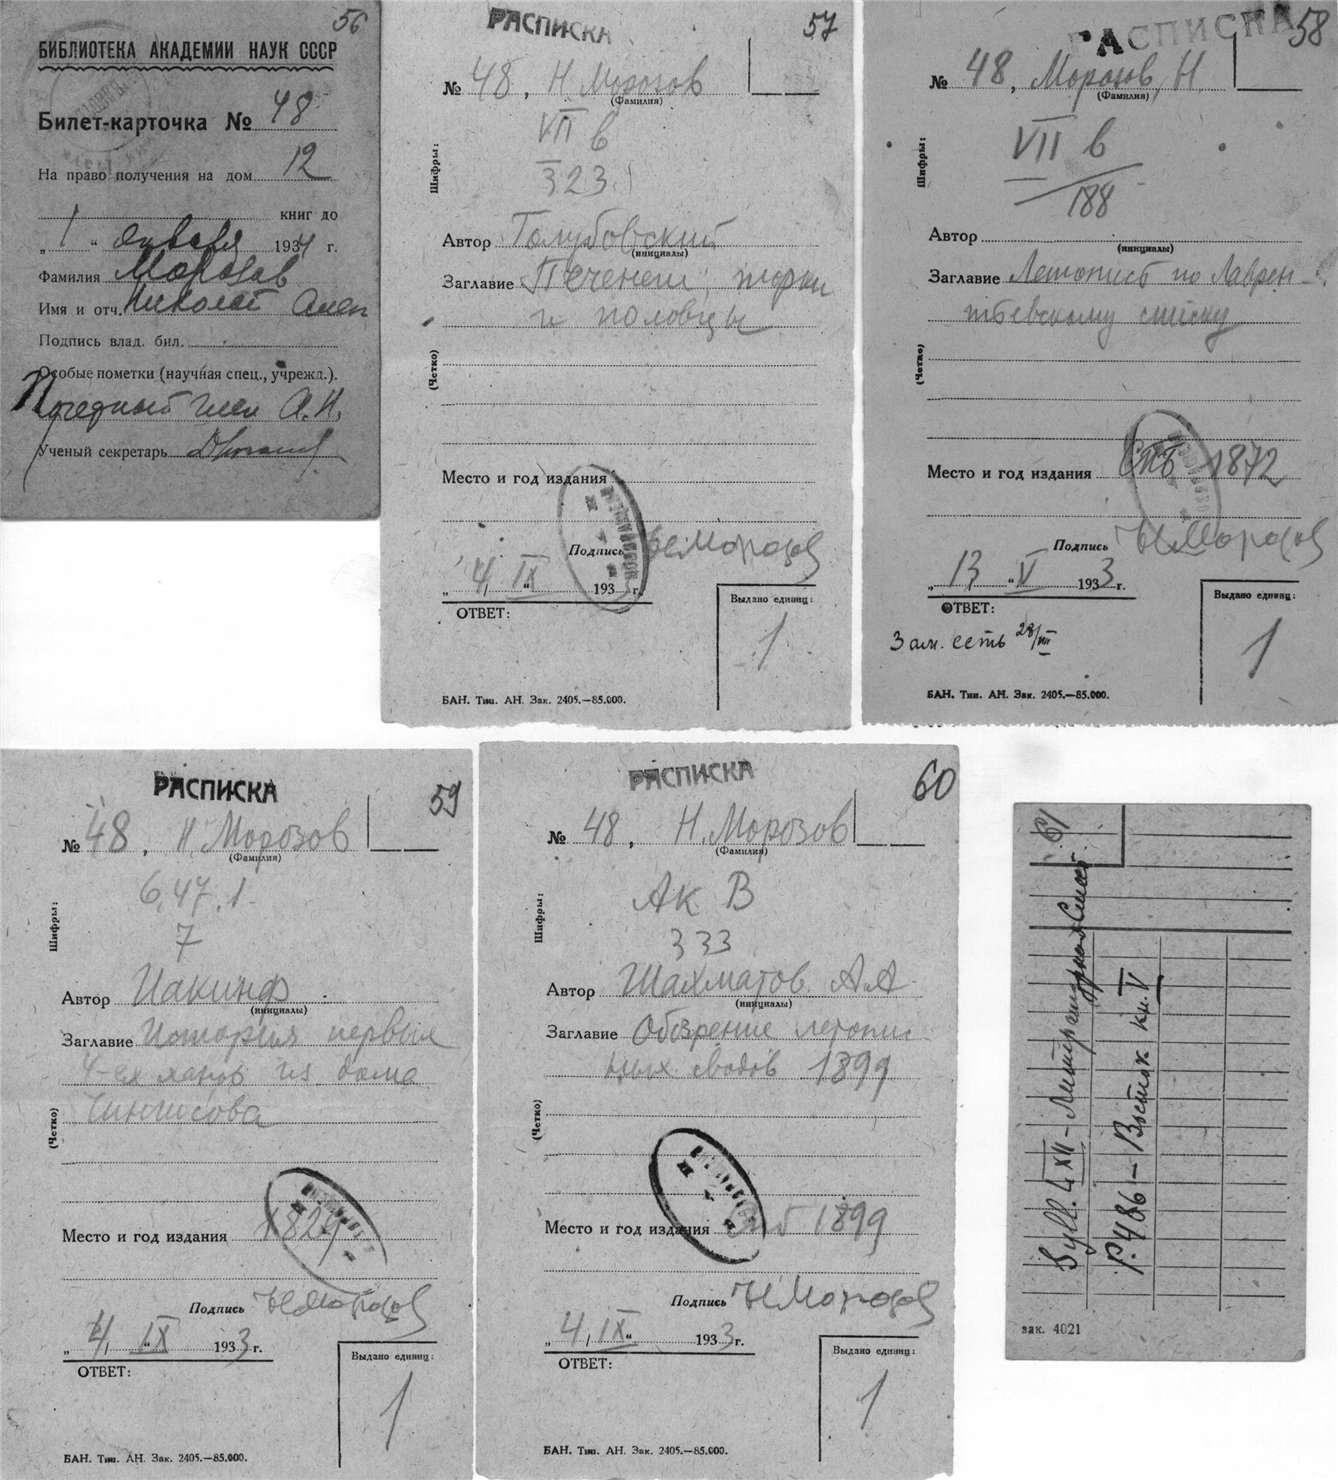 56
БИБЛИОТЕКА АКАДЕМИИ НАУК СССР
Билет-карточка № 48
На право получения на дом 12
книг до
„ 1 “ января 1934 г.
Фамилия Морозов
Имя и отч. Николай Алек
Подпись влад. бил.
Особые пометки (научная спец., учрежд.).
Почетный член А.Н.
Ученый секретарь
РАСПИСКА
57
№ 48, Н Морозов
(Фамилия)
Шифры:
VII в
323
Автор Голубовский
(инициалы)
Заглавие Печенеги, торки
и половцы
(Четко)
Место и год издания
Подпись НМорозов
„ 4 “ IX 193 г.
ОТВЕТ:
Выдано единиц:
1
БАН. Тип. АН. Зак. 2405.—85.000.
РАСПИСКА
58
№ 48, Морозов, Н.
(Фамилия)
Шифры:
VII в
188
Автор
(инициалы)
Заглавие Летопись по Лаврен-
тьевскому списку
(Четко)
Место и год издания Спб 1872
Подпись НМорозов
„ 13 “ V 1933 г.
ОТВЕТ:
Зам. есть 28/III
Выдано единиц:
1
БАН. Тип. АН. Зак. 2405.—85.000.
РАСПИСКА
59
№ 48, Н. Морозов
(Фамилия)
Шифры:
6.47.1.
7
Автор Иакинф
(инициалы)
Заглавие История первых
4-ех ханов из дома
Чингисова
(Четко)
Место и год издания 1829
Подпись НМорозов
„ 4 “ IX 1933 г.
ОТВЕТ:
Выдано единиц:
1
БАН. Тип. АН. Зак. 2405.—85.000.
РАСПИСКА
60
№ 48, Н. Морозов
(Фамилия)
Шифры:
Ак В
333
Автор Шахматов А.А
(инициалы)
Заглавие Обозрение летопис
ных сводов 1899
(Четко)
Место и год издания Спб 1899
Подпись НМорозов
„ 4 “ IX 1933 г.
ОТВЕТ:
Выдано единиц:
1
БАН. Тип. АН. Зак. 2405.—85.000.
61
XII –
Р. 486 – Восток кн. V
зак. 4021